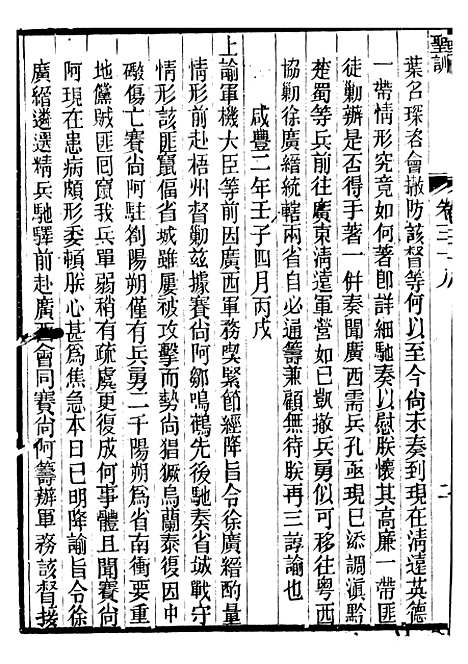 聖訓
卷三十八
二
葉名琛咨會撤防該督等何以至今尚未奏到現在清遠英德
一帶情形究竟如何著卽詳細馳奏以慰朕懷其高廉一帶匪
徒勦辦是否得手著一併奏聞廣西需兵孔亟現已添調滇黔
楚蜀等兵前往廣東清遠軍營如已凱撤兵勇似可移往粵西
協勦徐廣縉統轄兩省自必通籌兼顧無待朕再三諄諭也
咸豐二年壬子四月丙戌
上諭軍機大臣等前因廣西軍務喫緊節經降旨令徐廣縉酌量
情形前赴梧州督勦茲據賽尙阿鄒鳴鶴先後馳奏省城戰守
情形該匪竄偪省城雖屢被攻擊而勢尙猖獗烏蘭泰復因中
礮傷亡賽尙阿駐劄陽朔僅有兵勇二千陽朔爲省南衝要重
地儻賊匪回竄我兵單弱稍有疏虞更復成何事體且聞賽尙
阿現在患病頗形委頓朕心甚爲焦急本日已明降諭旨令徐
廣縉遴選精兵馳驛前赴廣西會同賽尙阿籌辦軍務該督接